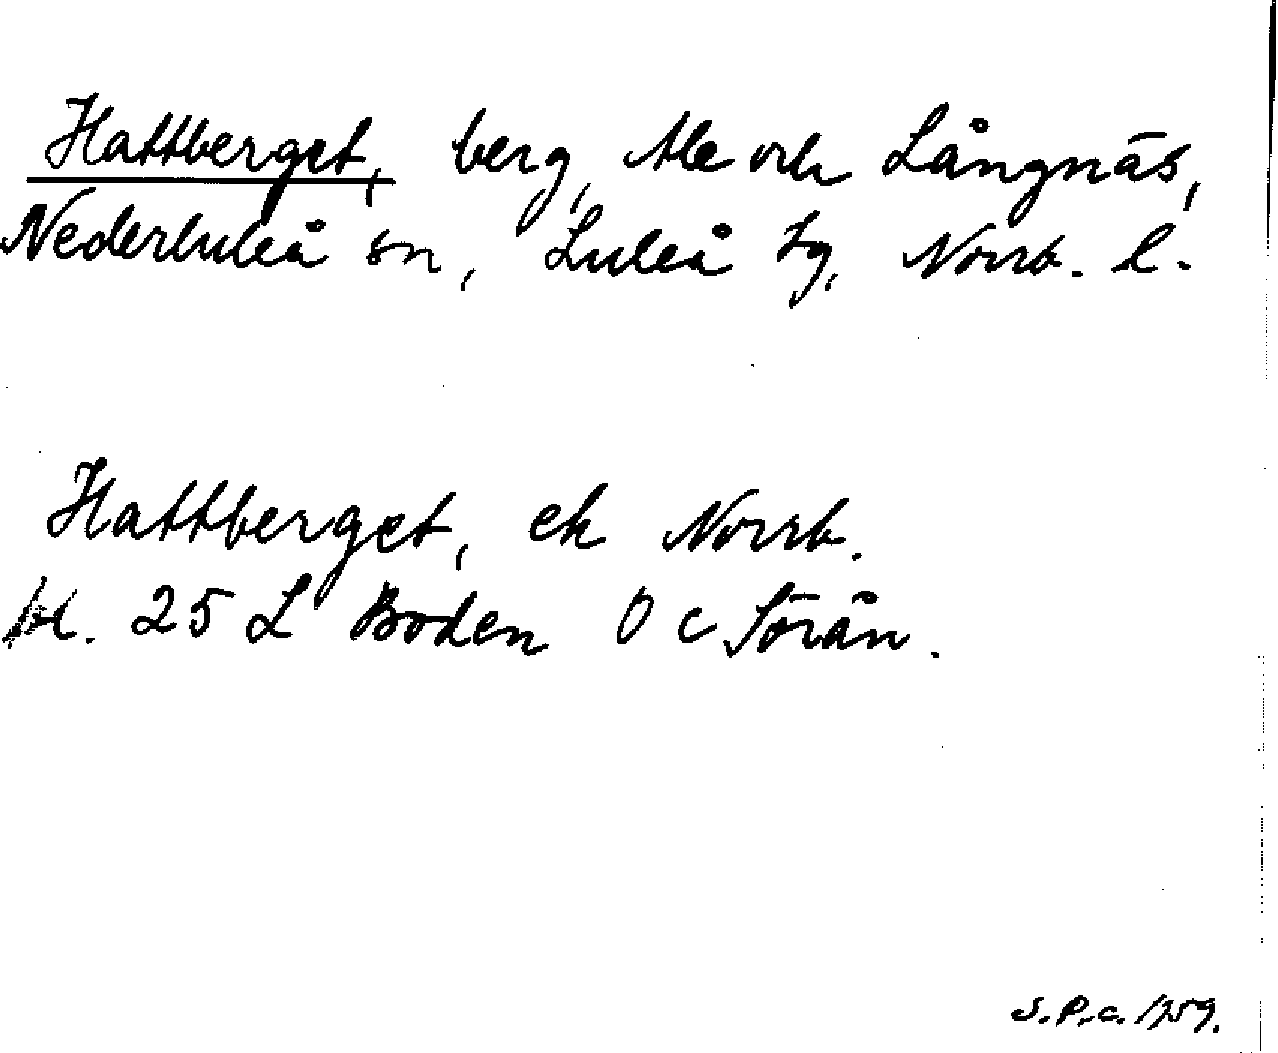 Hattberget, berg, Ale och Långnäs,
Nederluleå sn, Luleå tg, Norrb. l.
Hattberget, ek Norrb.
bl. 25 L Boden O c Sörån.
S.P.c. 1959.